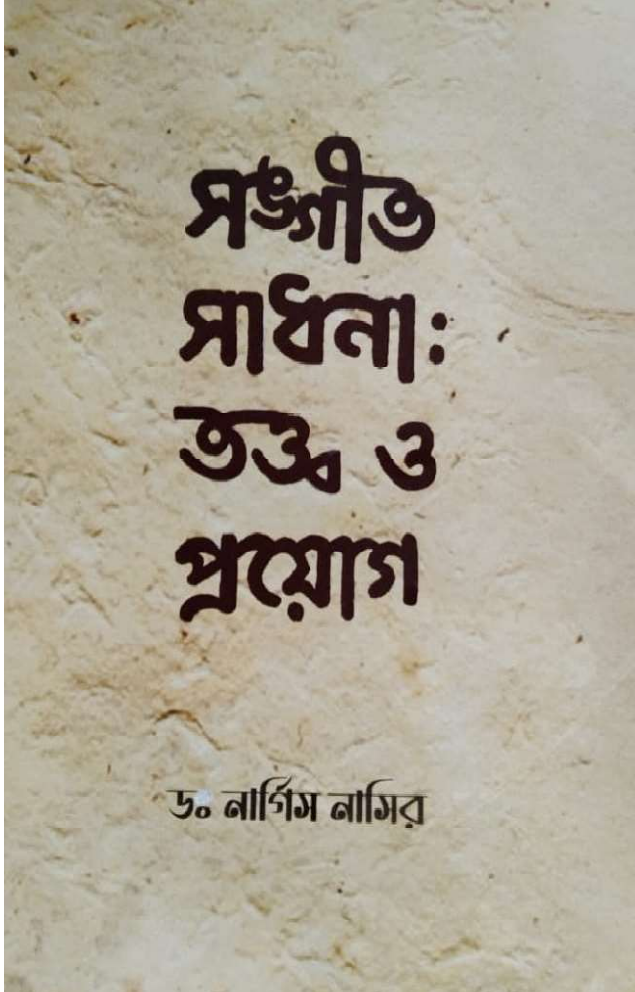 সঙ্গীত
সাধনা:
তত্ত্ব ও
প্রয়োগ
ডঃ নার্গিস নাসির